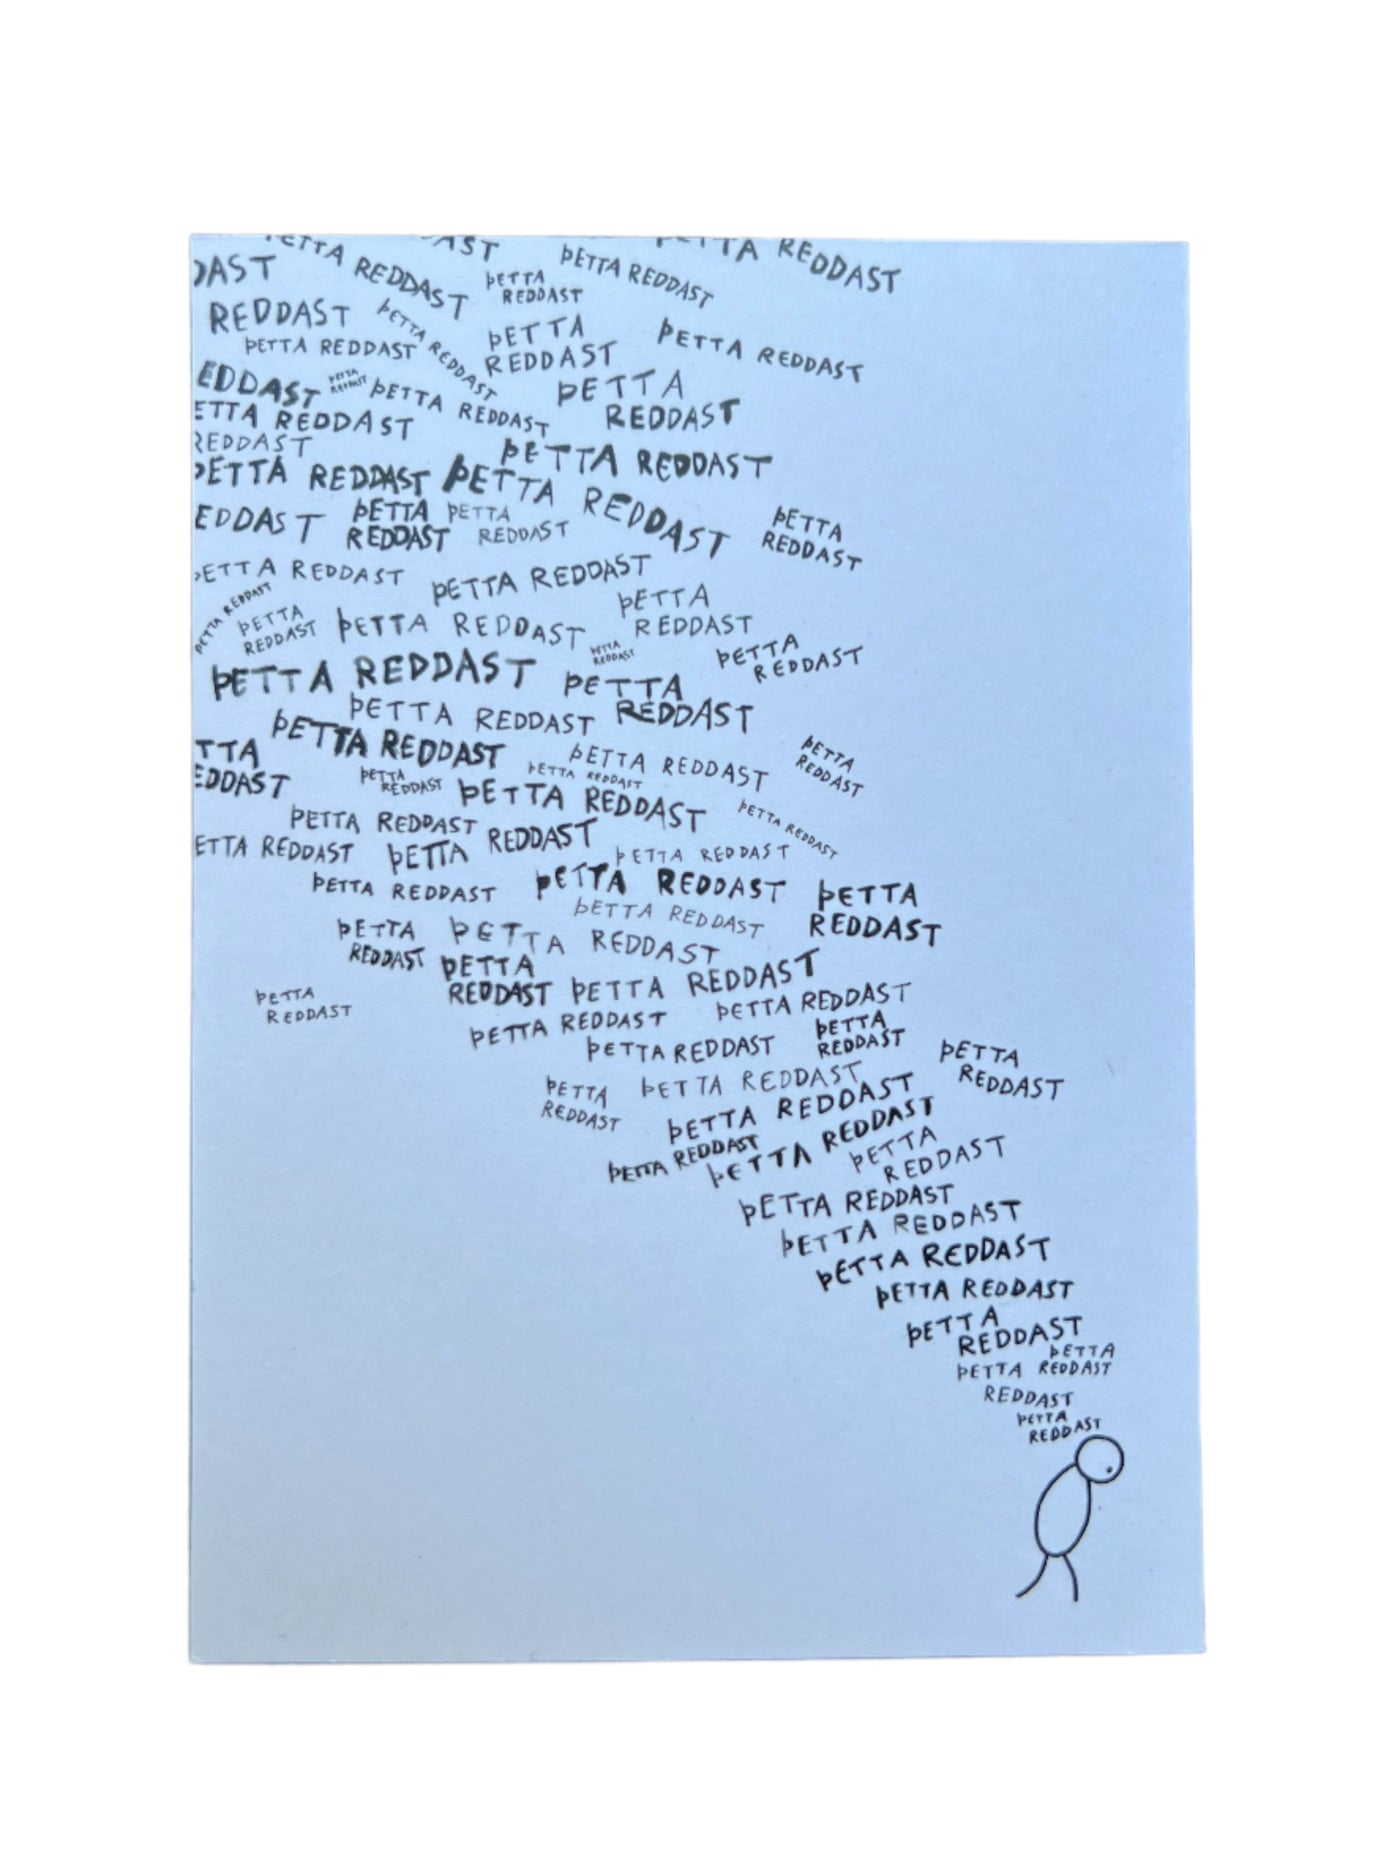 ÞETTA REDDAST
DAST
ETTA REDDAST
AST
ÞETTA REDDAST
ÞETTA
REDDAST
REDDAST
ÞETTA REDDAST
ÞETTA
REDDAST
ÞETTA REDDAST
ÞETTA REDDAST
EDDAST
ÞETTA
REDDAST
ÞETTA REDDAST
ÞETTA
REDDAST
ETTA REDDAST
REDDAST
ÞETTA REDDAST
ÞETTA REDDAST
ÞETTA REDDAST
EDDAST
ÞETTA
REDDAST
ÞETTA
REDDAST
ÞETTA
REDDAST
ETTA REDDAST
ÞETTA REDDAST
ÞETTA REDDAST
ÞETTA
REDDAST
ÞETTA
REDDAST
ÞETTA REDDAST
ÞETTA
REDDAST
ÞETTA
REDDAST
ÞETTA REDDAST
ÞETTA
REDDAST
ÞETTA REDDAST
ÞETTA REDDAST
TTA
EDDAST
ÞETTA REDDAST
ÞETTA
REDDAST
ÞETTA
REDDAST
ÞETTA REDDAST
ÞETTA REDDAST
ÞETTA REDDAST
ÞETTA REDDAST
ETTA REDDAST
ÞETTA REDDAST
ÞETTA REDDAST
ÞETTA REDDAST
ÞETTA REDDAST
ÞETTA
REDDAST
ÞETTA REDDAST
ÞETTA
REDDAST
ÞETTA REDDAST
ÞETTA
REDDAST
ÞETTA REDDAST
ÞETTA
REDDAST
ÞETTA REDDAST
ÞETTA REDDAST
ÞETTA
REDDAST
ÞETTA REDDAST
ÞETTA
REDDAST
ÞETTA
REDDAST
ÞETTA REDDAST
ÞETTA REDDAST
ÞETTA REDDAST
ÞETTA REDDAST
ÞETTA
REDDAST
ÞETTA REDDAST
ÞETTA REDDAST
ÞETTA REDDAST
ÞETTA REDDAST
ÞETTA
REDDAST
ÞETTA
ÞETTA REDDAST
REDDAST
ÞETTA
REDDAST